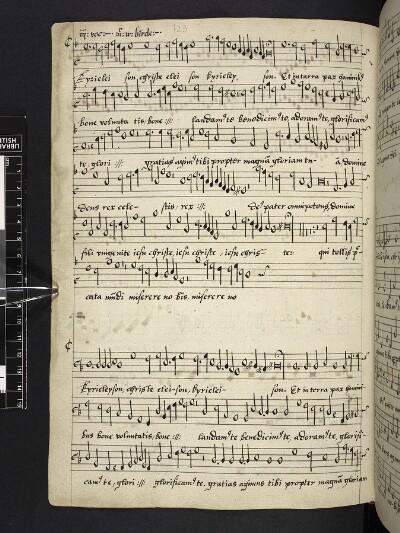 iij. voc. m. w. birde
123
Kyrielei son, christe elei son kyrieley. son. Et in tarra pax hominibus
bone volunta tis, bone :||: laudamus te benedicimus te, adoramus te, glorificamus
te, glori :||: gratias agimus tibi propter magnā gloriam tu- ā. domine
Deus rex cele- stis, rex :||: Deus pater omnipotens, domine
fili unigenite iesu christe, iesu christe, iesu chris- te: qui tollis p-
cata mūdi miserere no bis, miserere no
Kyrieleyson, christe elei-son, kyrielei- son. Et in terra pax homini-
bus bone voluntatis, bone :||: laudamus te benedicimus te, adoramus te, glorifi-
camus te, glori :||: glorificamus te. gratias agimus tibi propter magnā gloriam